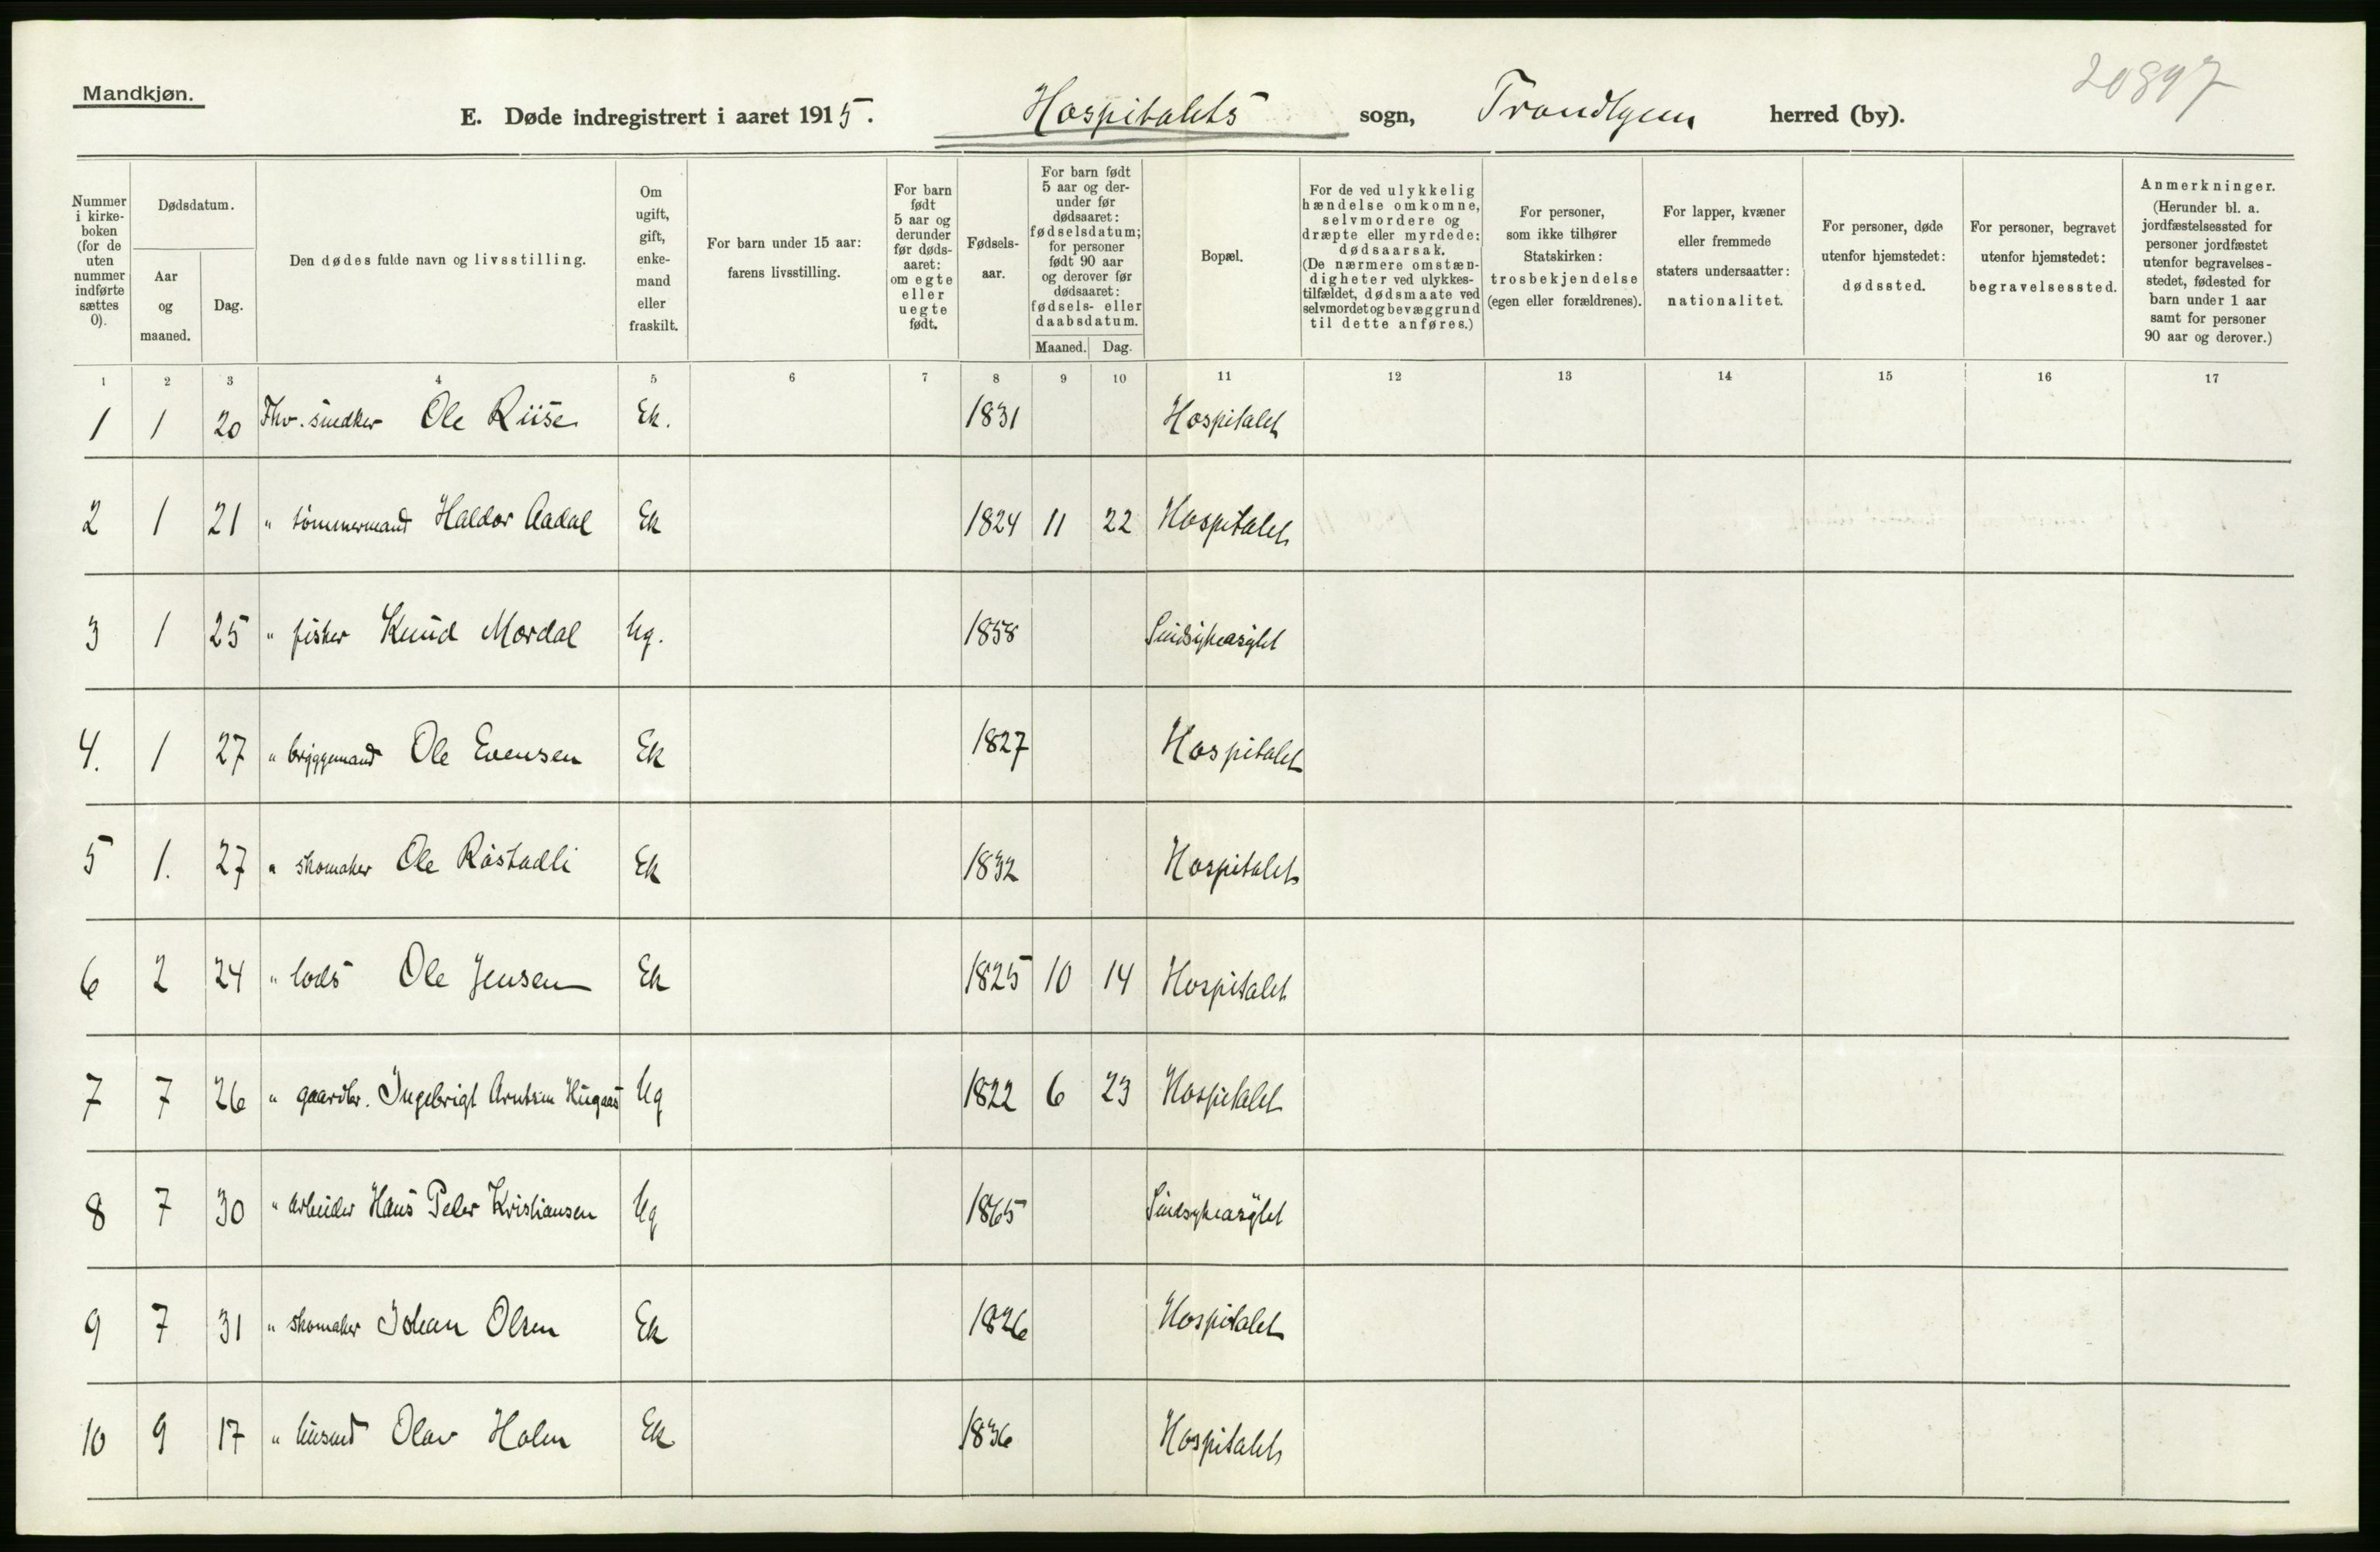 Mandkjøn.
20897
E. Døde indregistrert i aaret 1915. Hospitalets sogn, Trondhjem herred (by).
Nummer i kirkeboken (for de uten nummer indførte sættes 0).
Dødsdatum.
Aar og maaned.
Dag.
Den dødes fulde navn og livsstilling.
Om ugift, gift, enkemand eller fraskilt.
For barn under 15 aar: farens livsstilling.
For barn født 5 aar og derunder før dødsaaret: om egte eller uegte født.
Fødselsaar.
For barn født 5 aar og derunder før dødsaaret: fødselsdatum; for personer født 90 aar og derover før dødsaaret: fødsels- eller daabsdatum.
Maaned. Dag.
Bopæl.
For de ved ulykkelig hændelse omkomne, selvmordere og dræpte eller myrdede: dødsaarsak. (De nærmere omstændigheter ved ulykkestilfældet, dødsmaate ved selvmordet og bevæggrund til dette anføres.)
For personer, som ikke tilhører Statskirken: trosbekjendelse (egen eller forældrenes).
For lapper, kvæner eller fremmede staters undersaatter: nationalitet.
For personer, døde utenfor hjemstedet: dødssted.
For personer, begravet utenfor hjemstedet: begravelsessted.
Anmerkninger. (Herunder bl. a. jordfæstelsessted for personer jordfæstet utenfor begravelsesstedet, fødested for barn under 1 aar samt for personer 90 aar og derover.)
1 2 3 4 5 6 7 8 9 10 11 12 13 14 15 16 17
1 1 20 Fhv. snedker Ole Riise Ek. 1831 Hospitalet
2 1 21 " tømmermand Haldor Aadal Ek 1824 11 22 Hospitalet
3 1 25 " fisker Knud Mordal Ug. 1858 Sindsykeasylet
4. 1 27 " bryggemand Ole Evensen Ek 1827 Hospitalet
5 1. 27 " skomaker Ole Råstadli Ek 1832 Hospitalet
6 2 24 " lods Ole Jensen Ek 1825 10 14 Hospitalet
7 7 26 " gaardbr. Ingebrigt Arntsen Hugaas Ug 1822 6 23 Hospitalet
8 7 30 " arbeider Hans Peder Kristiansen Ug 1865 Sindsykeasylet
9 7 31 " skomaker Johan Olsen Ek 1826 Hospitalet
10 9 17 " husmd Olav Holm Ek 1836 Hospitalet